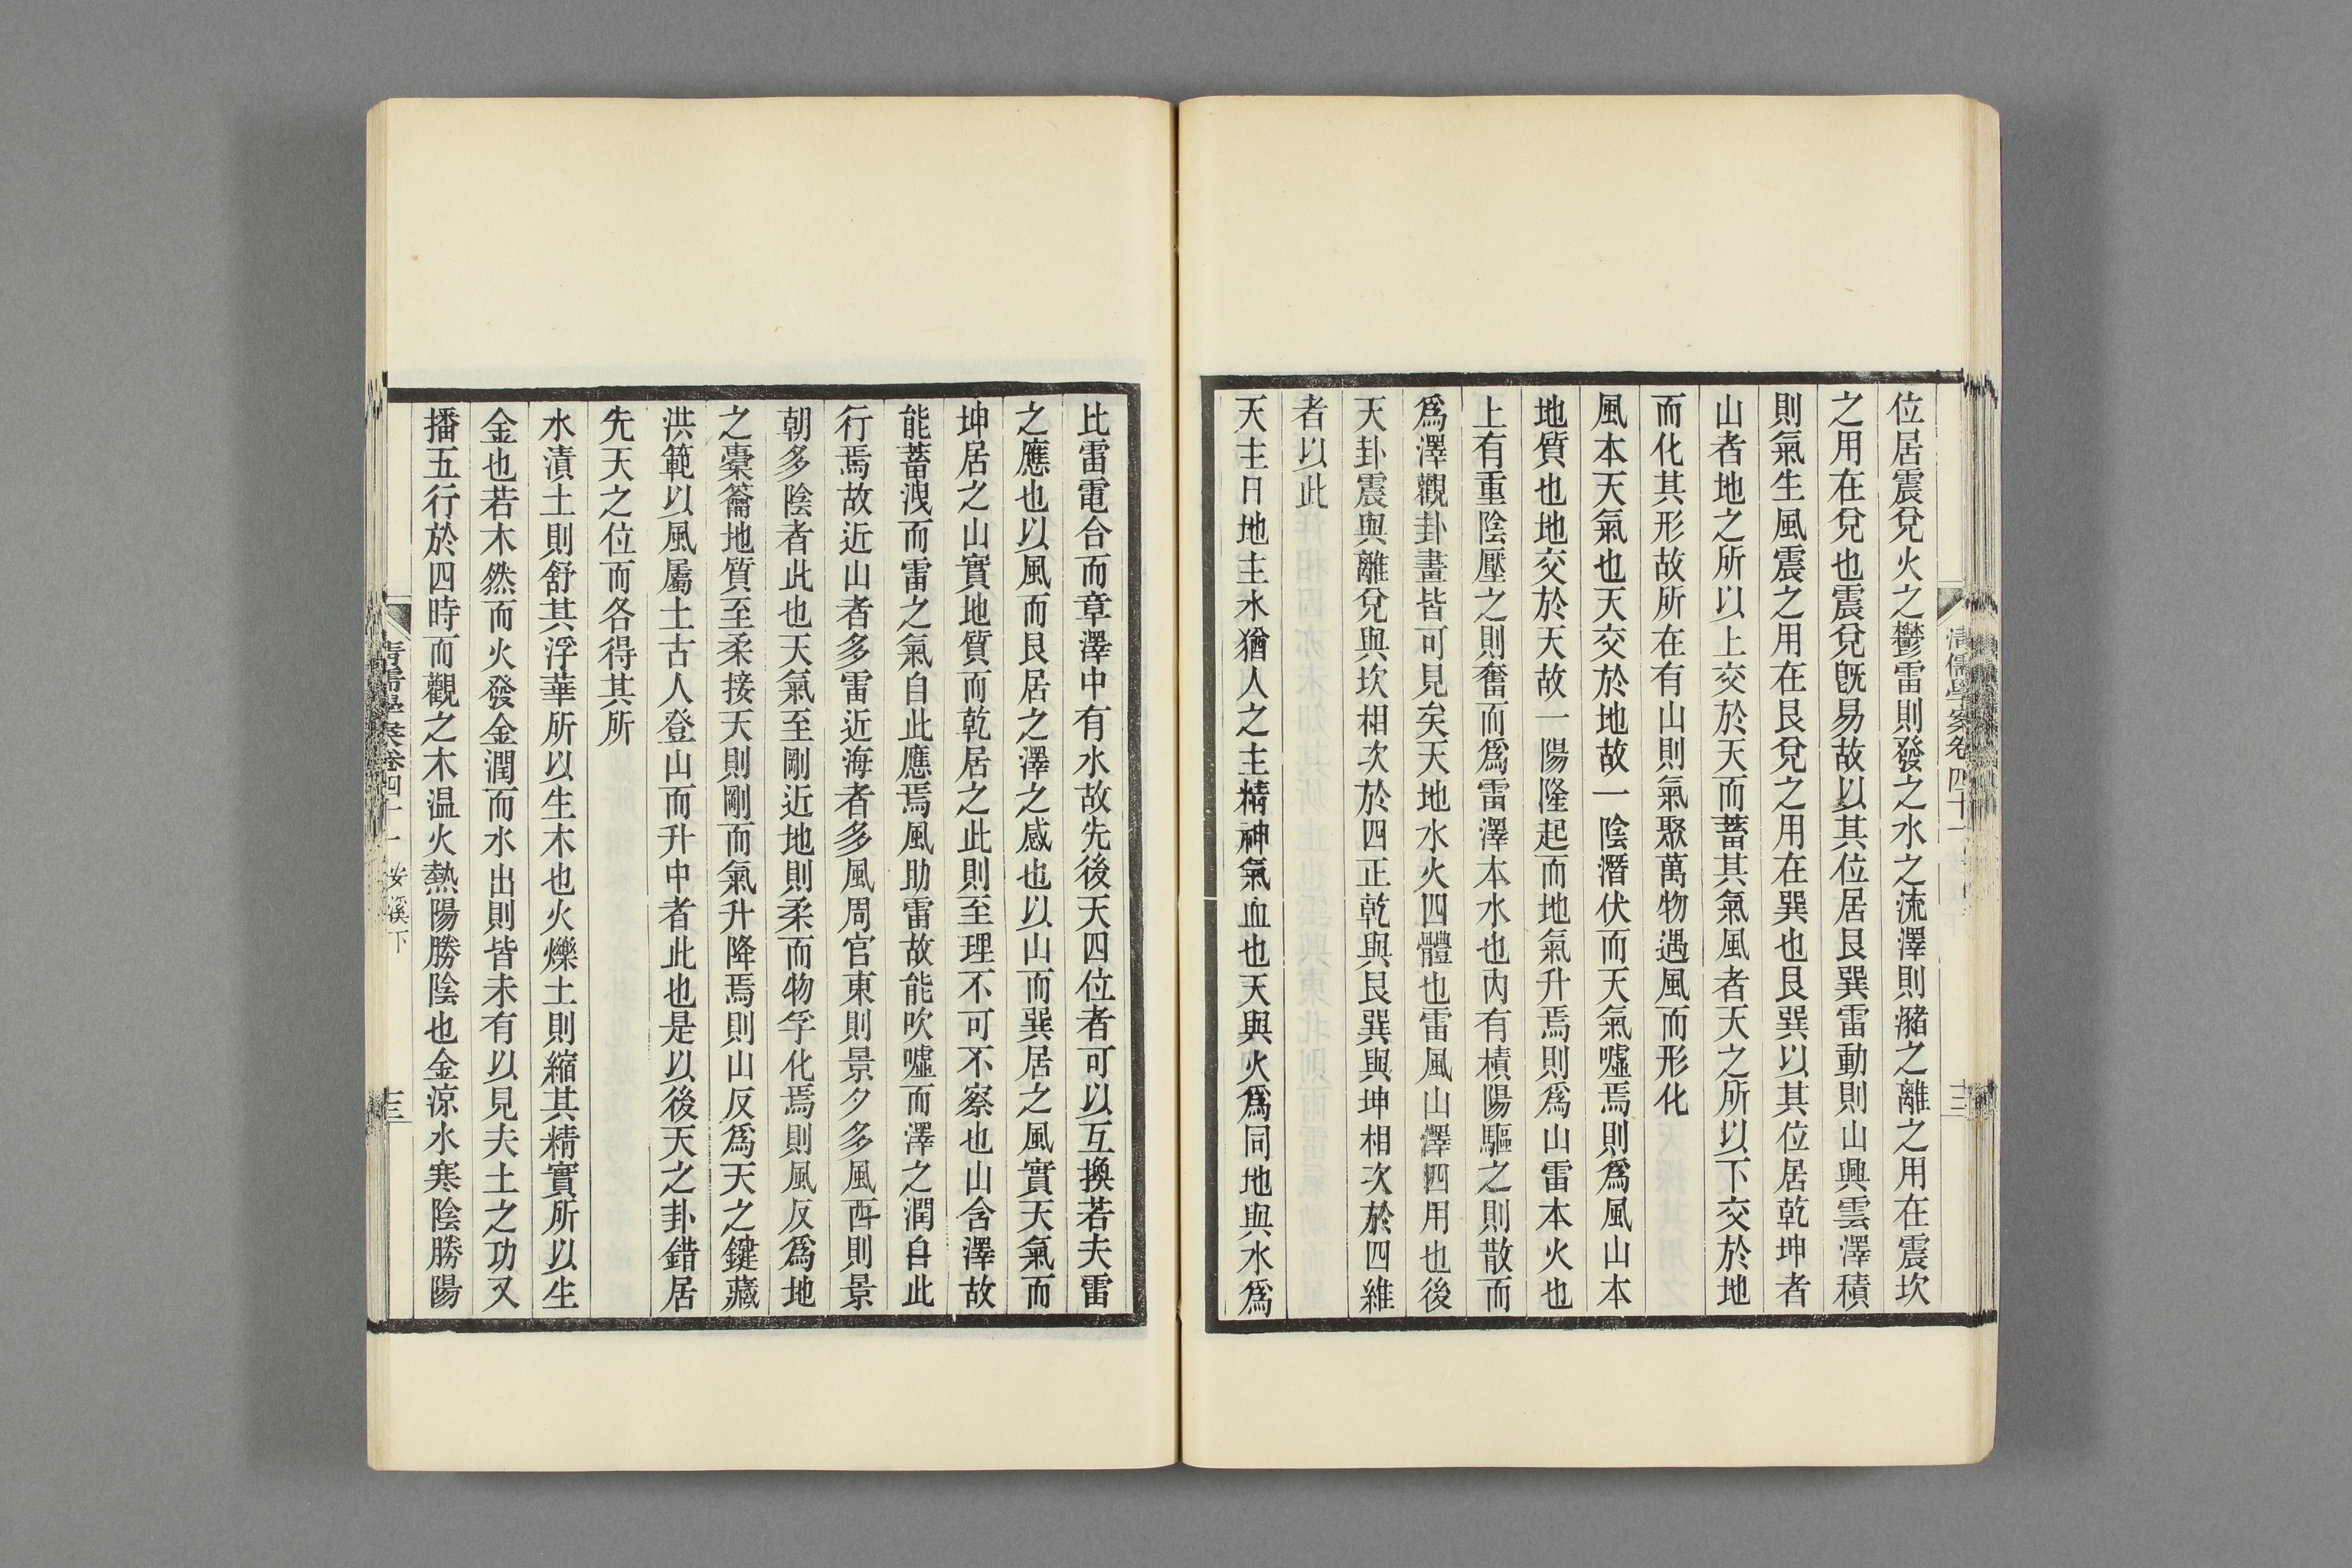 位居震兌火之鬱雷則發之水之流澤則瀦之離之用在震坎
之用在兌也震兌旣易故以其位居艮巽雷動則山興雲澤積
則氣生風震之用在艮兌之用在巽也艮巽以其位居乾坤者
山者地之所以上交於天而蓄其氣風者天之所以下交於地
而化其形故所在有山則氣聚萬物遇風而形化
風本天氣也天交於地故一陰潛伏而天氣噓焉則爲風山本
地質也地交於天故一陽隆起而地氣升焉則爲山雷本火也
上有重陰壓之則奮而爲雷澤本水也內有積陽驅之則散而
爲澤觀卦畫皆可見矣天地水火四體也雷風山澤四用也後
天卦震與離兌與坎相次於四正乾與艮巽與坤相次於四維
者以此
天主日地主水猶人之主精神氣血也天與火爲同地與水爲
清儒學案卷四十一
十三
比雷電合而章澤中有水故先後天四位者可以互換若夫雷
之應也以風而艮居之澤之感也以山而巽居之風實天氣而
坤居之山實地質而乾居之此則至理不可不察也山含澤故
能蓄洩而雷之氣自此應焉風助雷故能吹噓而澤之潤自此
行焉故近山者多雷近海者多風周官東則景夕多風西則景
朝多陰者此也天氣至剛近地則柔而物孚化焉則風反爲地
之橐籥地質至柔接天則剛而氣升降焉則山反爲天之鍵藏
洪範以風屬土古人登山而升中者此也是以後天之卦錯居
先天之位而各得其所
水漬土則舒其浮華所以生木也火爍土則縮其精實所以生
金也若木然而火發金潤而水出則皆未有以見夫土之功又
播五行於四時而觀之木温火熱陽勝陰也金涼水寒陰勝陽
清儒學案卷四十一 安溪下
十三